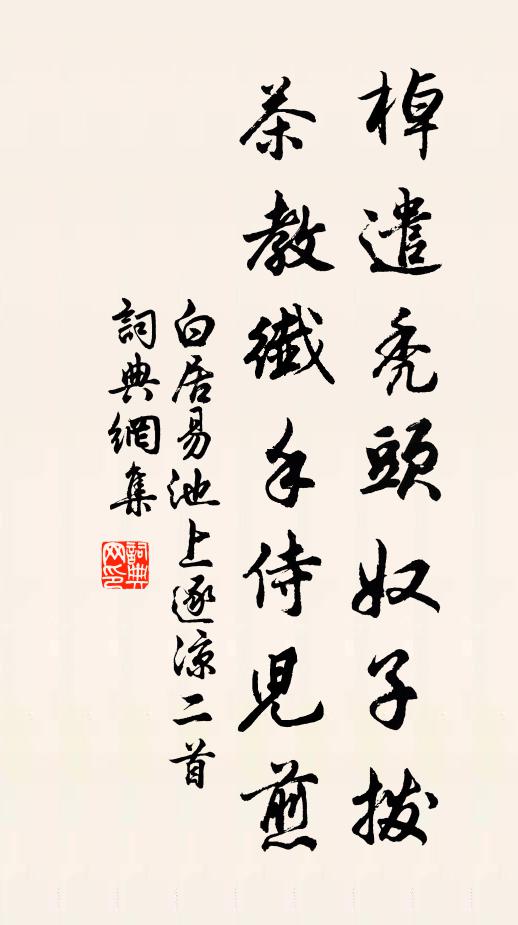 棹遣禿頭奴子撥
茶教纖手侍兒煎
白居易池上逐涼二首
詞典網集
詞典网印